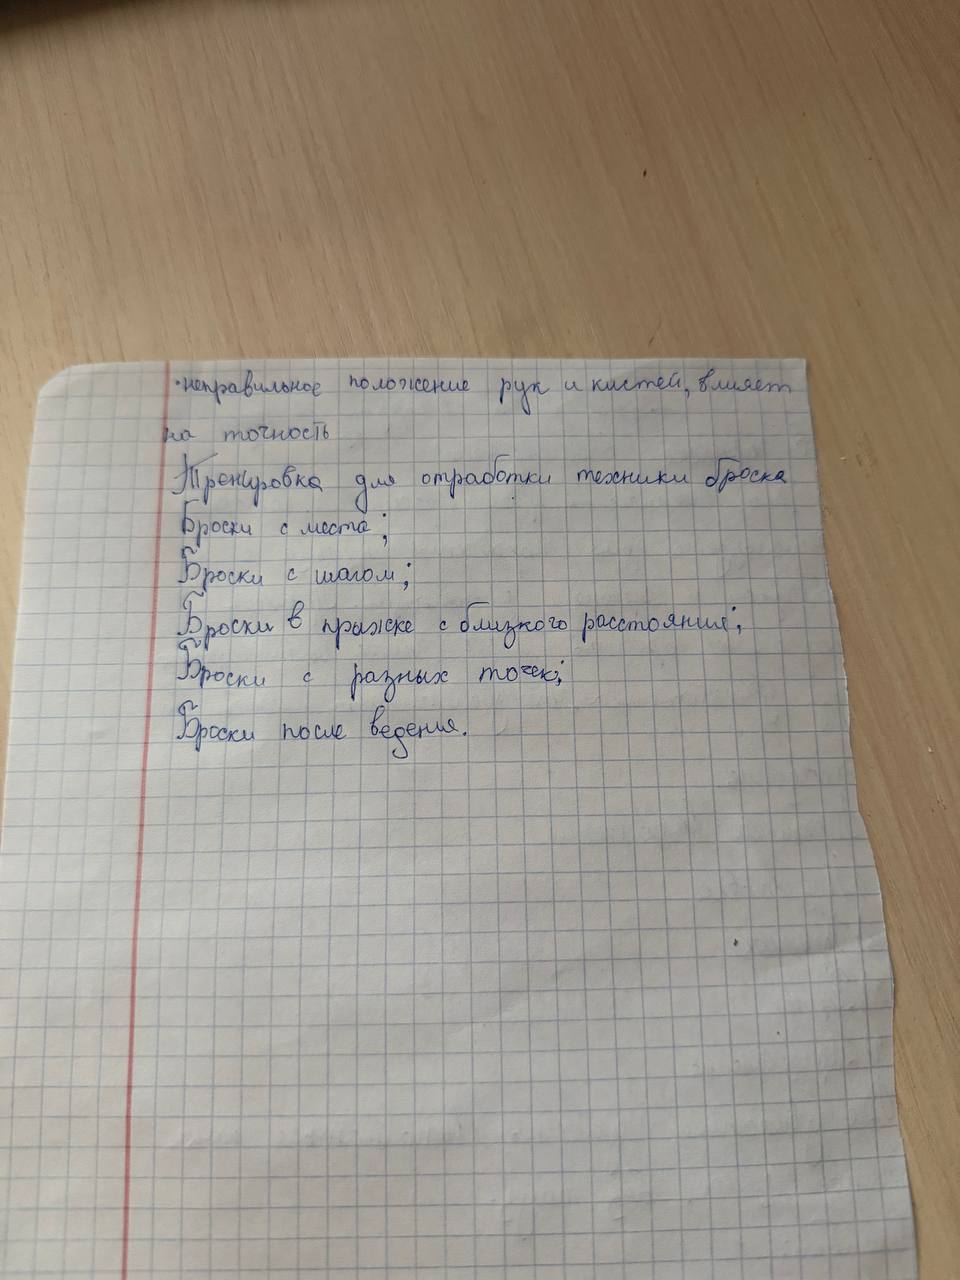 ·неправильное положение рук и кистей, влияет
на точность
Тренировка для отработки техники броска
Броски с места;
Броски с шагом;
Броски в прыжке с близкого расстояния;
Броски с разных точек;
Броски после ведения.